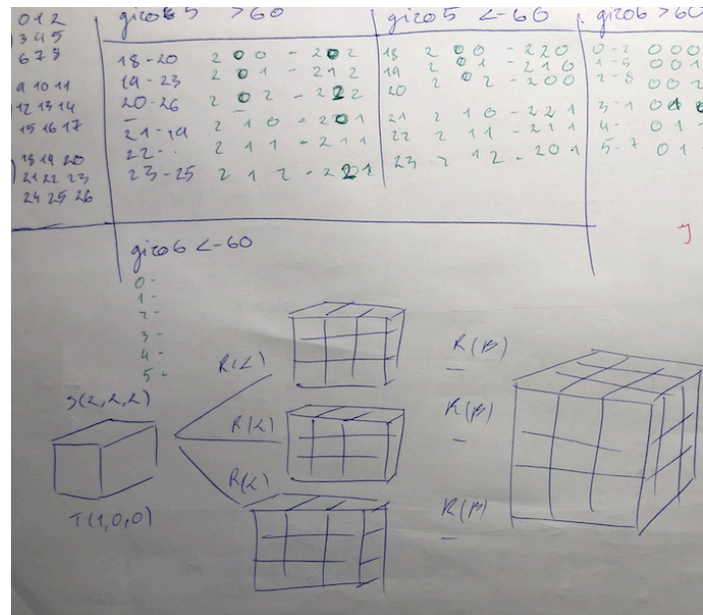 0 1 2
3 4 5
6 7 8
9 10 11
12 13 14
15 16 17
18 19 20
21 22 23
24 25 26
giro5 >60
18-20 2 0 0 - 2 0 2
19-23 2 0 1 - 2 1 2
20-26 2 0 2 - 2 2 2
21-19 2 1 0 - 2 0 1
22-. 2 1 1 - 2 1 1
23-25 2 1 2 - 2 2 1
giro5 <-60
18 2 0 0 - 2 2 0
19 2 0 1 - 2 1 0
20 2 0 2 - 2 0 0
21 2 1 0 - 2 2 1
22 2 1 1 - 2 1 1
23 2 1 2 - 2 0 1
giro6 >60
0-2 0 0 0
1-5 0 0 1
2-8 0 0 2
3-1 0 1 0
4-. 0 1
5-7 0 1
giro6 <-60
0-
1-
2-
3-
4-
5-
S(2,2,2)
T(1,0,0)
R(α)
R(α)
R(α)
R(β)
R(β)
R(β)